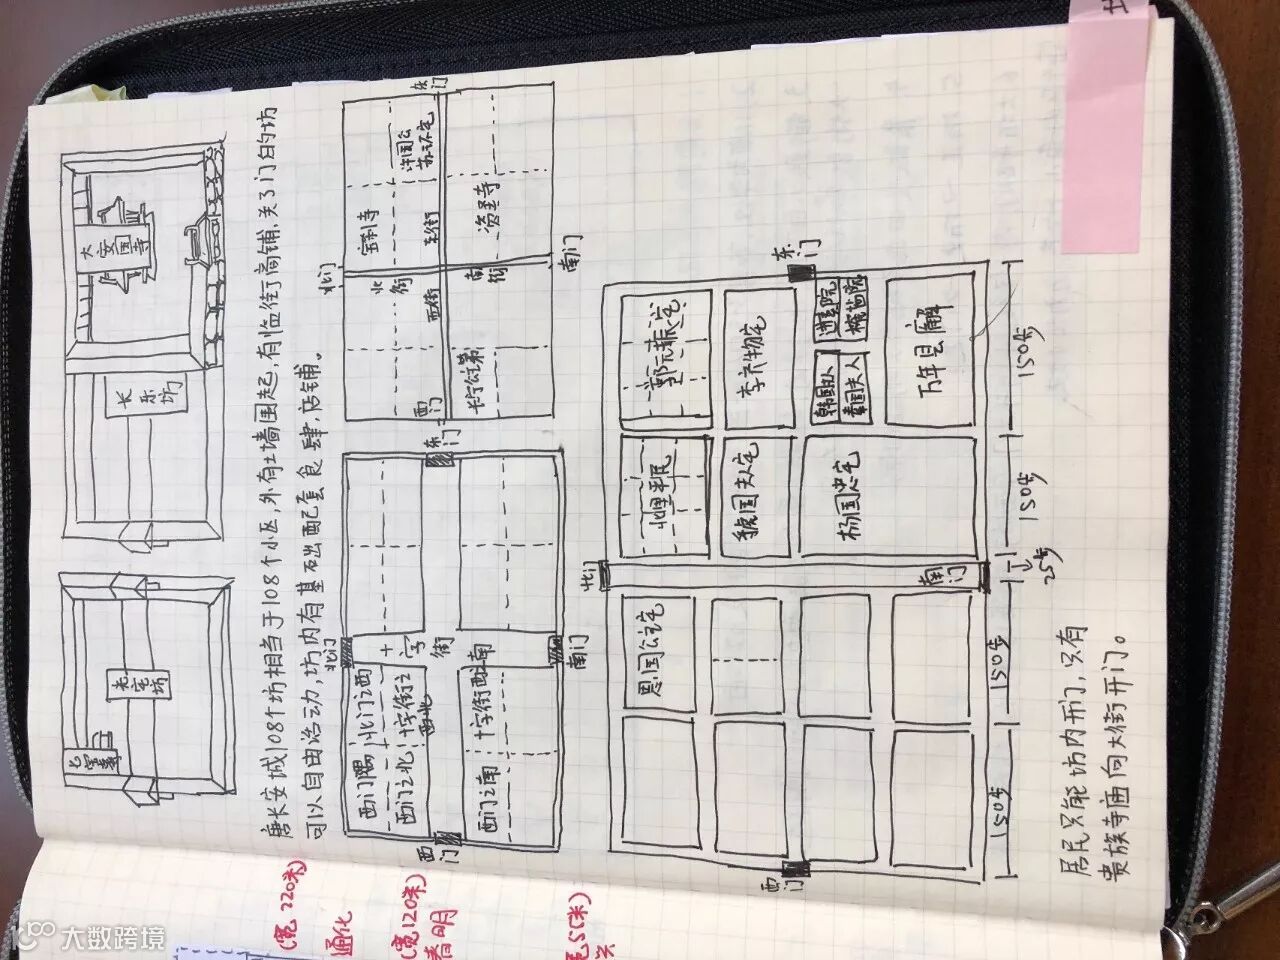 大
安
国
寺
长
乐
坊
光
宅
坊
唐长安城108个坊相当于108个小区,外有土墙围起,有临街商铺,关了门的坊
可以自由活动,坊内有基础配套食肆,店铺。
北门
十字街
南门
西门
东门
西门隅
北门之西
西门之北
十字街之西北
西门之南
十字街西之南
北门
南门
西门
东门
北街
南街
西街
东街
宝刹寺
许国公
苏环宅
资圣寺
长宁公主第
北门
南门
西门
东门
恩国公宅
北里平民
虢国夫人宅
杨国忠宅
李齐物宅
韩国夫人
秦国夫人
进奏院
万年县廨
150步
150步
25步
150步
150步
居民只能坊内开门,只有
贵族寺庙向大街开门。
(宽220米)
通化
(宽120米)
春明
大数跨境